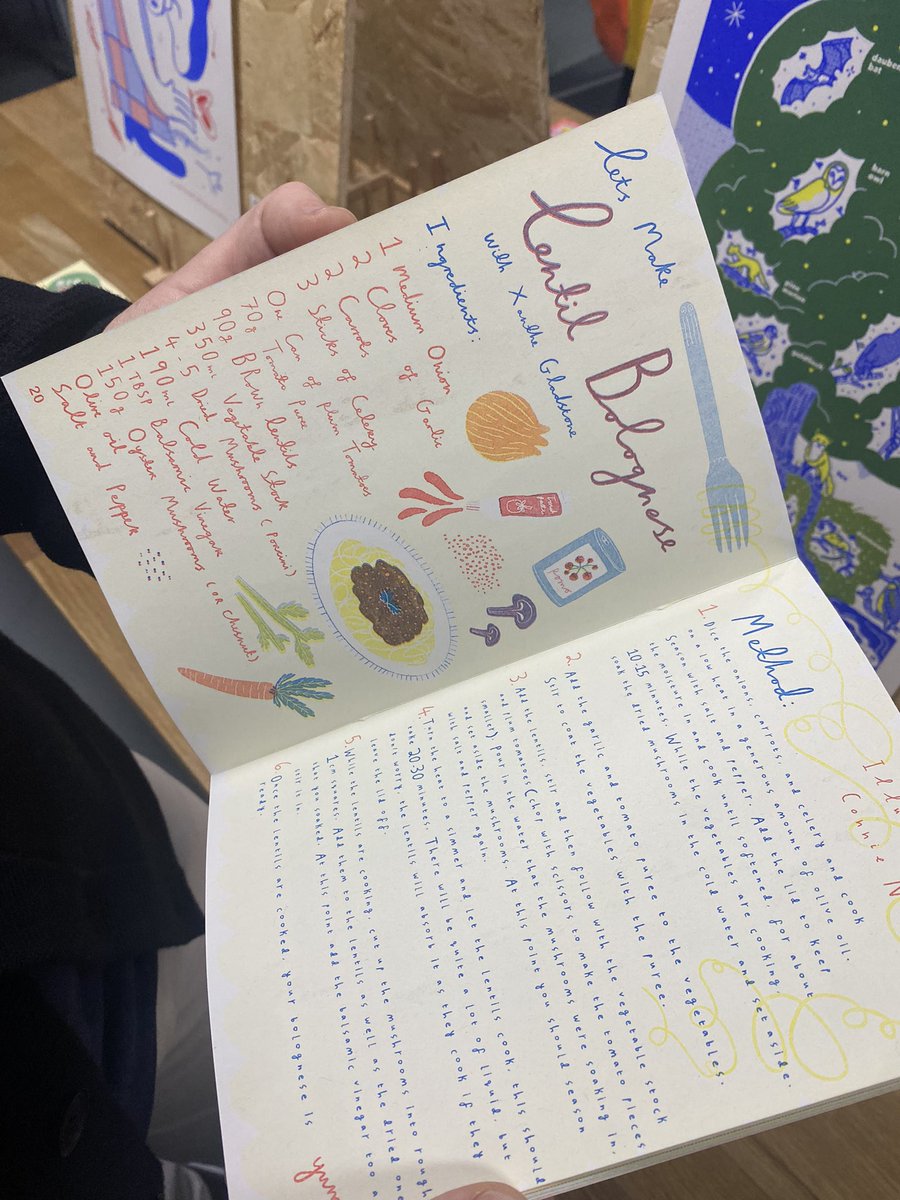 Lets Make
Lentil Bolognese
with Xanthe Gladstone
Ingredients:
1 Medium Onion
2 Cloves of Garlic
2 Carrots
3 Sticks of Celery
One Can of Plum Tomatoes
70g Tomato Pure
90g Brown lentils
350ml Vegetable Stock
4-5 Dried Mushrooms (Porcini)
190ml Cold Water
1 TBSP Balsamic Vinegar
150g Oyster Mushrooms (or chesnut)
Olive oil
Salt and Pepper
20
pomo
Method:
1. Dice the onions, carrots, and celery and cook
on a low heat in a generous amount of olive oil.
Season with salt and pepper. Add the lid to keep
the moisture in and cook until softened, for about
10-15 minutes. While the vegetables are cooking
soak the dried mushrooms in the cold water and set aside.
2. Add the garlic and tomato pure to the vegetables.
Stir to coat the vegetables with the puree.
3. Add the lentils, stir and then follow with the vegetable stock
and plum tomatoes (chop with scissors to make the tomato pieces
smaller). Pour in the water that the mushrooms were soaking in,
and set aside the mushrooms. At this point you should season
with salt and pepper again.
4. Turn the heat to a simmer and let the lentils cook, this should
take 20-30 minutes. There will be quite a lot of liquid, but
don't worry, the lentils will absorb it as they cook if they
leave the lid off.
5. While the lentils are cooking, cut up the mushrooms into rough
them to the lentils as well as the dried one
that you soaked. At this point add the balsamic vinegar too a
stir it in.
6. Once the lentils are cooked, your bolognese is
ready.
yum
Illu
Connie N
barn
owl
bat